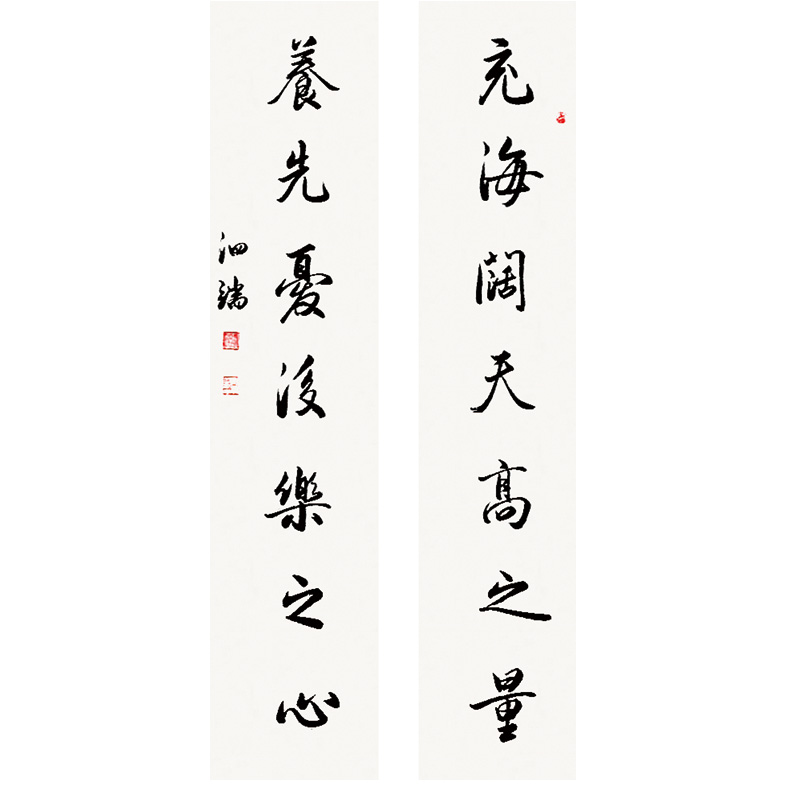 充海闊天高之量
養先憂後樂之心
泗端